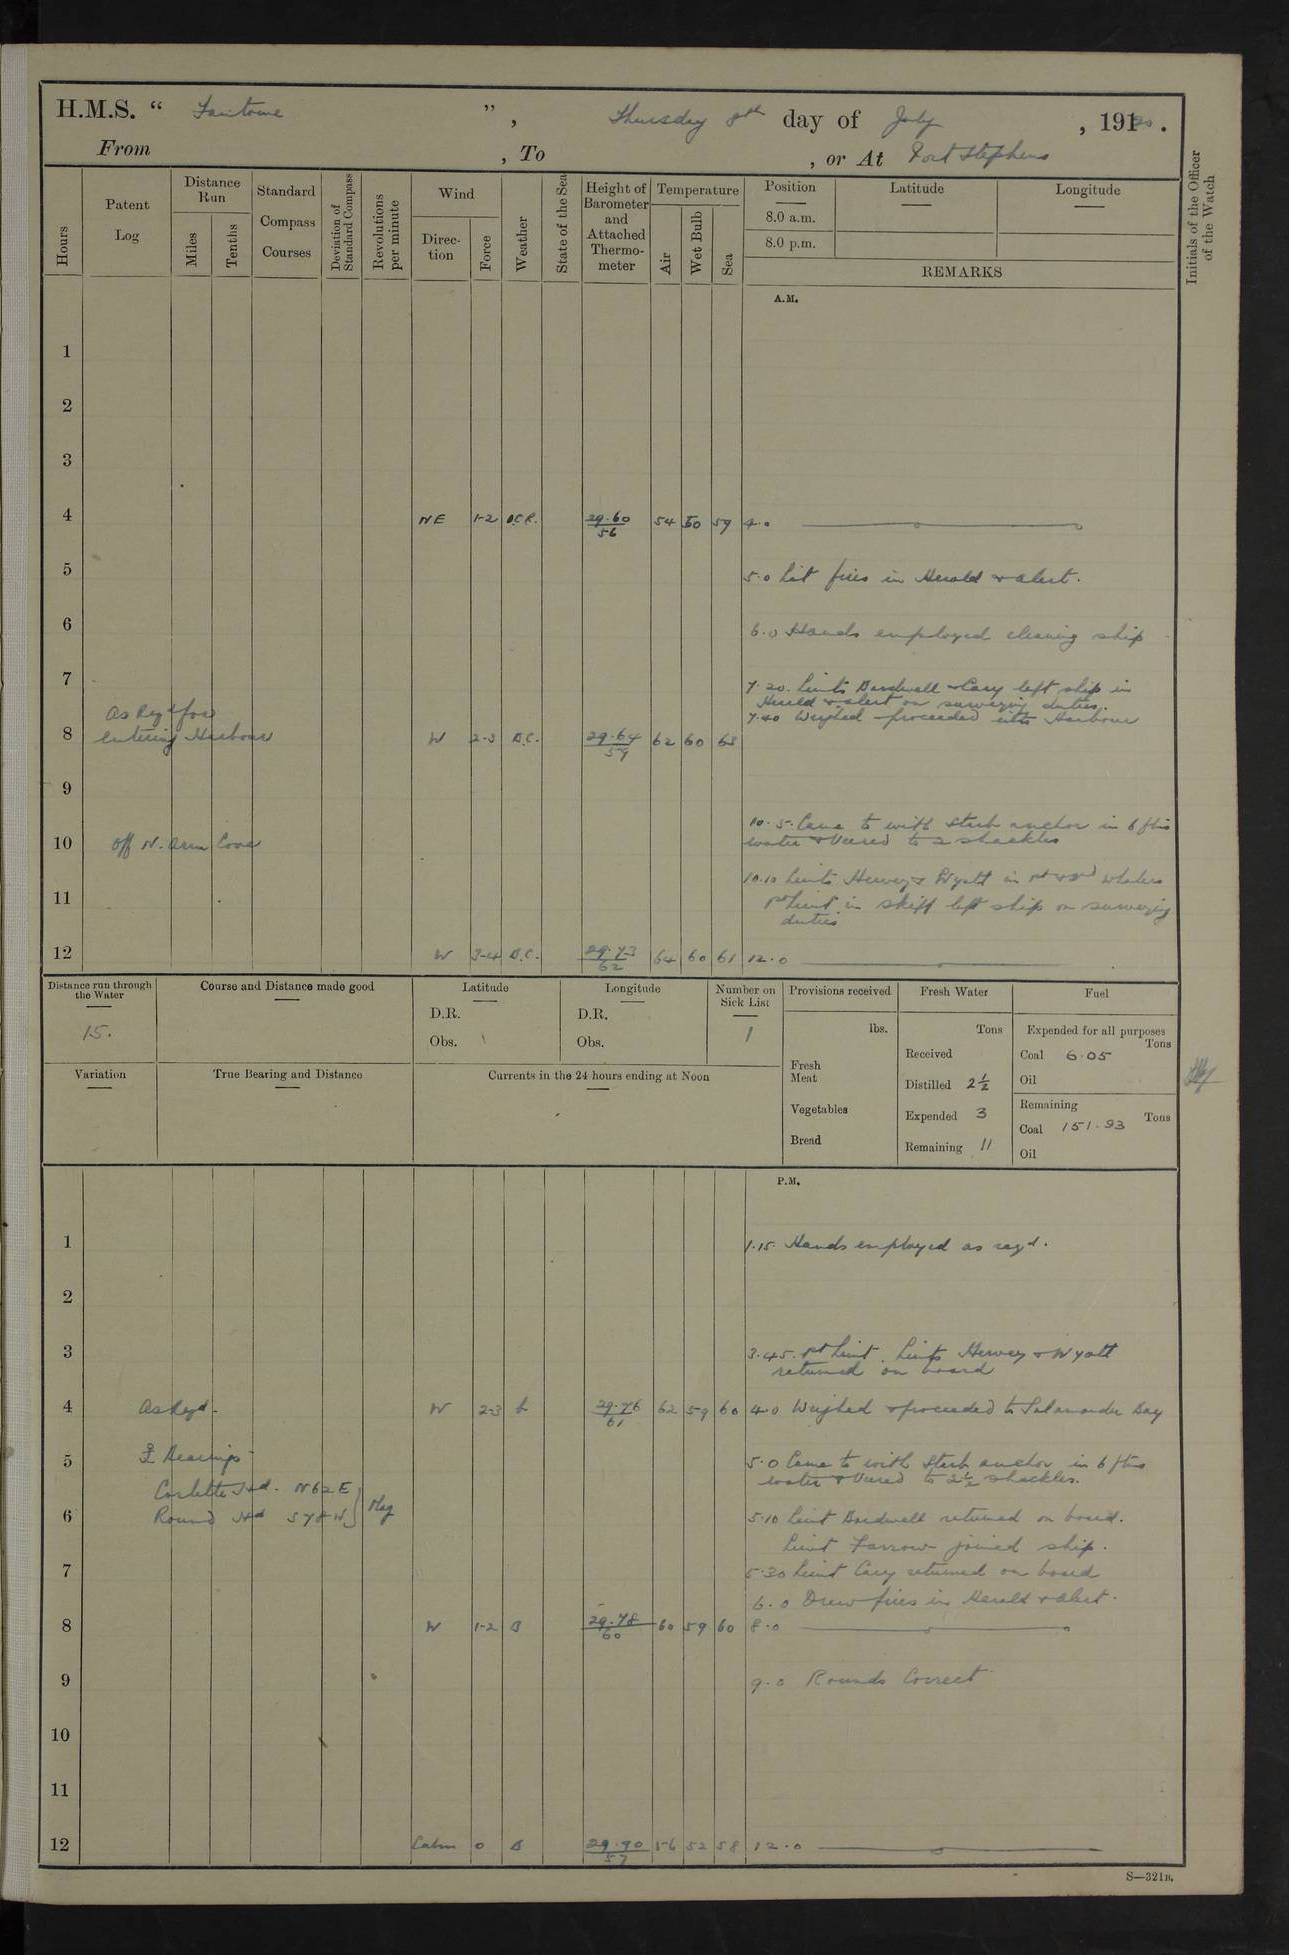 H.M.S. “ Fantome ”, Thursday 8th day of July, 1920.
From , To , or At Port Stephens
Hours
Patent Log
Distance Run
Miles
Tenths
Standard Compass Courses
Deviation of Standard Compass
Revolutions per minute
Wind
Direction
Force
Weather
State of the Sea
Height of Barometer and Attached Thermometer
Temperature
Air
Wet Bulb
Sea
Position
8.0 a.m.
8.0 p.m.
Latitude
Longitude
REMARKS
Initials of the Officer of the Watch
A.M.
1
2
3
4 NE 1-2 29.60 54 50 59 4.0
56
5 5.0 Lit fires in Herald & Alert.
6 6.0 Hands employed cleaning ship
7 7.20. Lieuts Bardwell & Cary left ship in
Herald & Alert on surveying duties.
As Reqd for 7.40 Weighed & proceeded into Harbour
8 Entering Harbour W 2-3 B.C. 29.64 62 60 63
59
9
10.5. Came to with Starb anchor in 6 fms
10 Off N. Arm Cove water & Veered to 2 shackles
10.10 Lieuts Hervey & Wyatt in 1st & 2nd Whalers
11 1st Lieut in skiff left ship on surveying
duties
12 W 3-4 B.C. 29.73 64 60 61 12.0
62
Distance run through the Water
15.
Course and Distance made good
Latitude
D.R.
Obs.
Longitude
D.R.
Obs.
Number on Sick List
1
Provisions received
lbs.
Fresh Meat
Vegetables
Bread
Fresh Water
Tons
Received
Distilled 2½
Expended 3
Remaining 11
Fuel
Expended for all purposes
Tons
Coal 6.05
Oil
Remaining
Tons
Coal 151.93
Oil
Variation
True Bearing and Distance
Currents in the 24 hours ending at Noon
P.M.
1 1.15. Hands employed as reqd.
2
3 3.45. 1st Lieut. Lieuts Hervey & Wyatt
returned on board
4 As Reqd. W 2-3 b 29.76 62 59 60 4.0 Weighed & proceeded to Salamander Bay
61
5 Bearings 5.0 Came to with Starb anchor in 6 fms
Corlette Hd. N62E water & Veered to 2½ shackles.
6 Round Hd S78W Mag 5.10 Lieut Bardwell returned on board.
Lieut Farrow joined ship.
7 5.30 Lieut Cary returned on board
6.0 Drew fires in Herald & Alert.
8 W 1-2 B 29.78 60 59 60 8.0
60
9 9.0 Rounds Correct
10
11
12 Calm 0 B 29.90 56 52 58 12.0
57
S—321B.